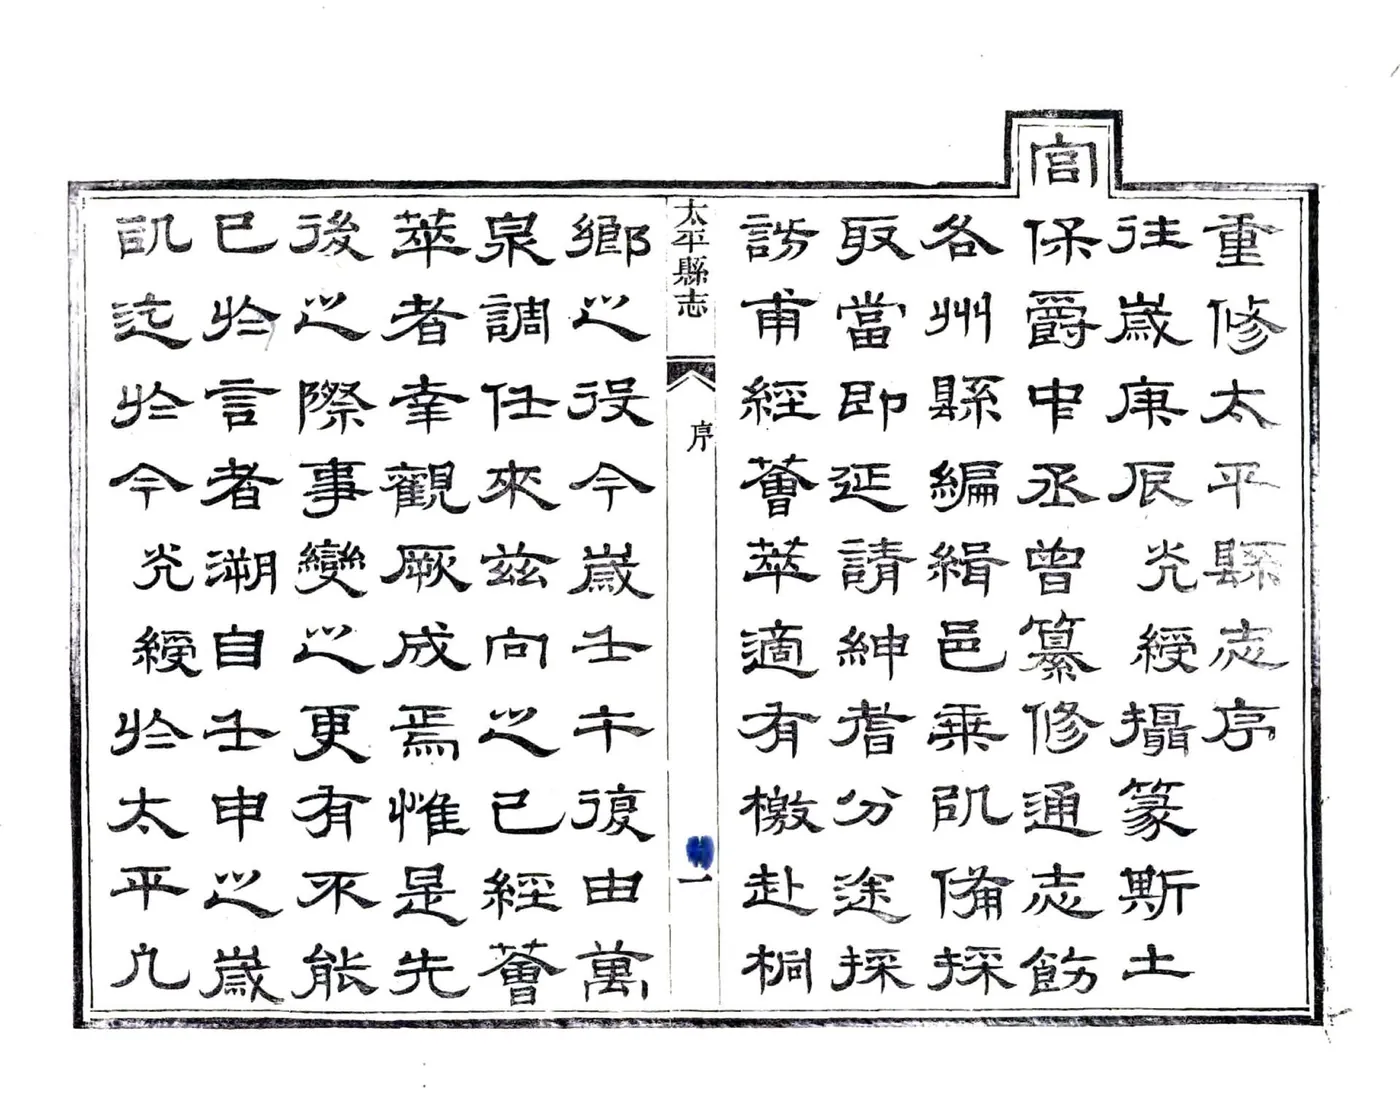 重修太平縣志序
往歲庚辰光綬攝篆斯土
宫保爵中丞曾纂修通志飭
各州縣編緝邑乗以備採
取當即延請紳耆分途採
訪甫經薈萃適有檄赴桐
太平縣志
序
一
鄉之役今歲壬午復由萬
泉調任來兹向之已經薈
萃者幸觀厥成焉惟是先
後之際事變之更有不能
已於言者溯自壬申之歲
訊迄於今光綬於太平凡